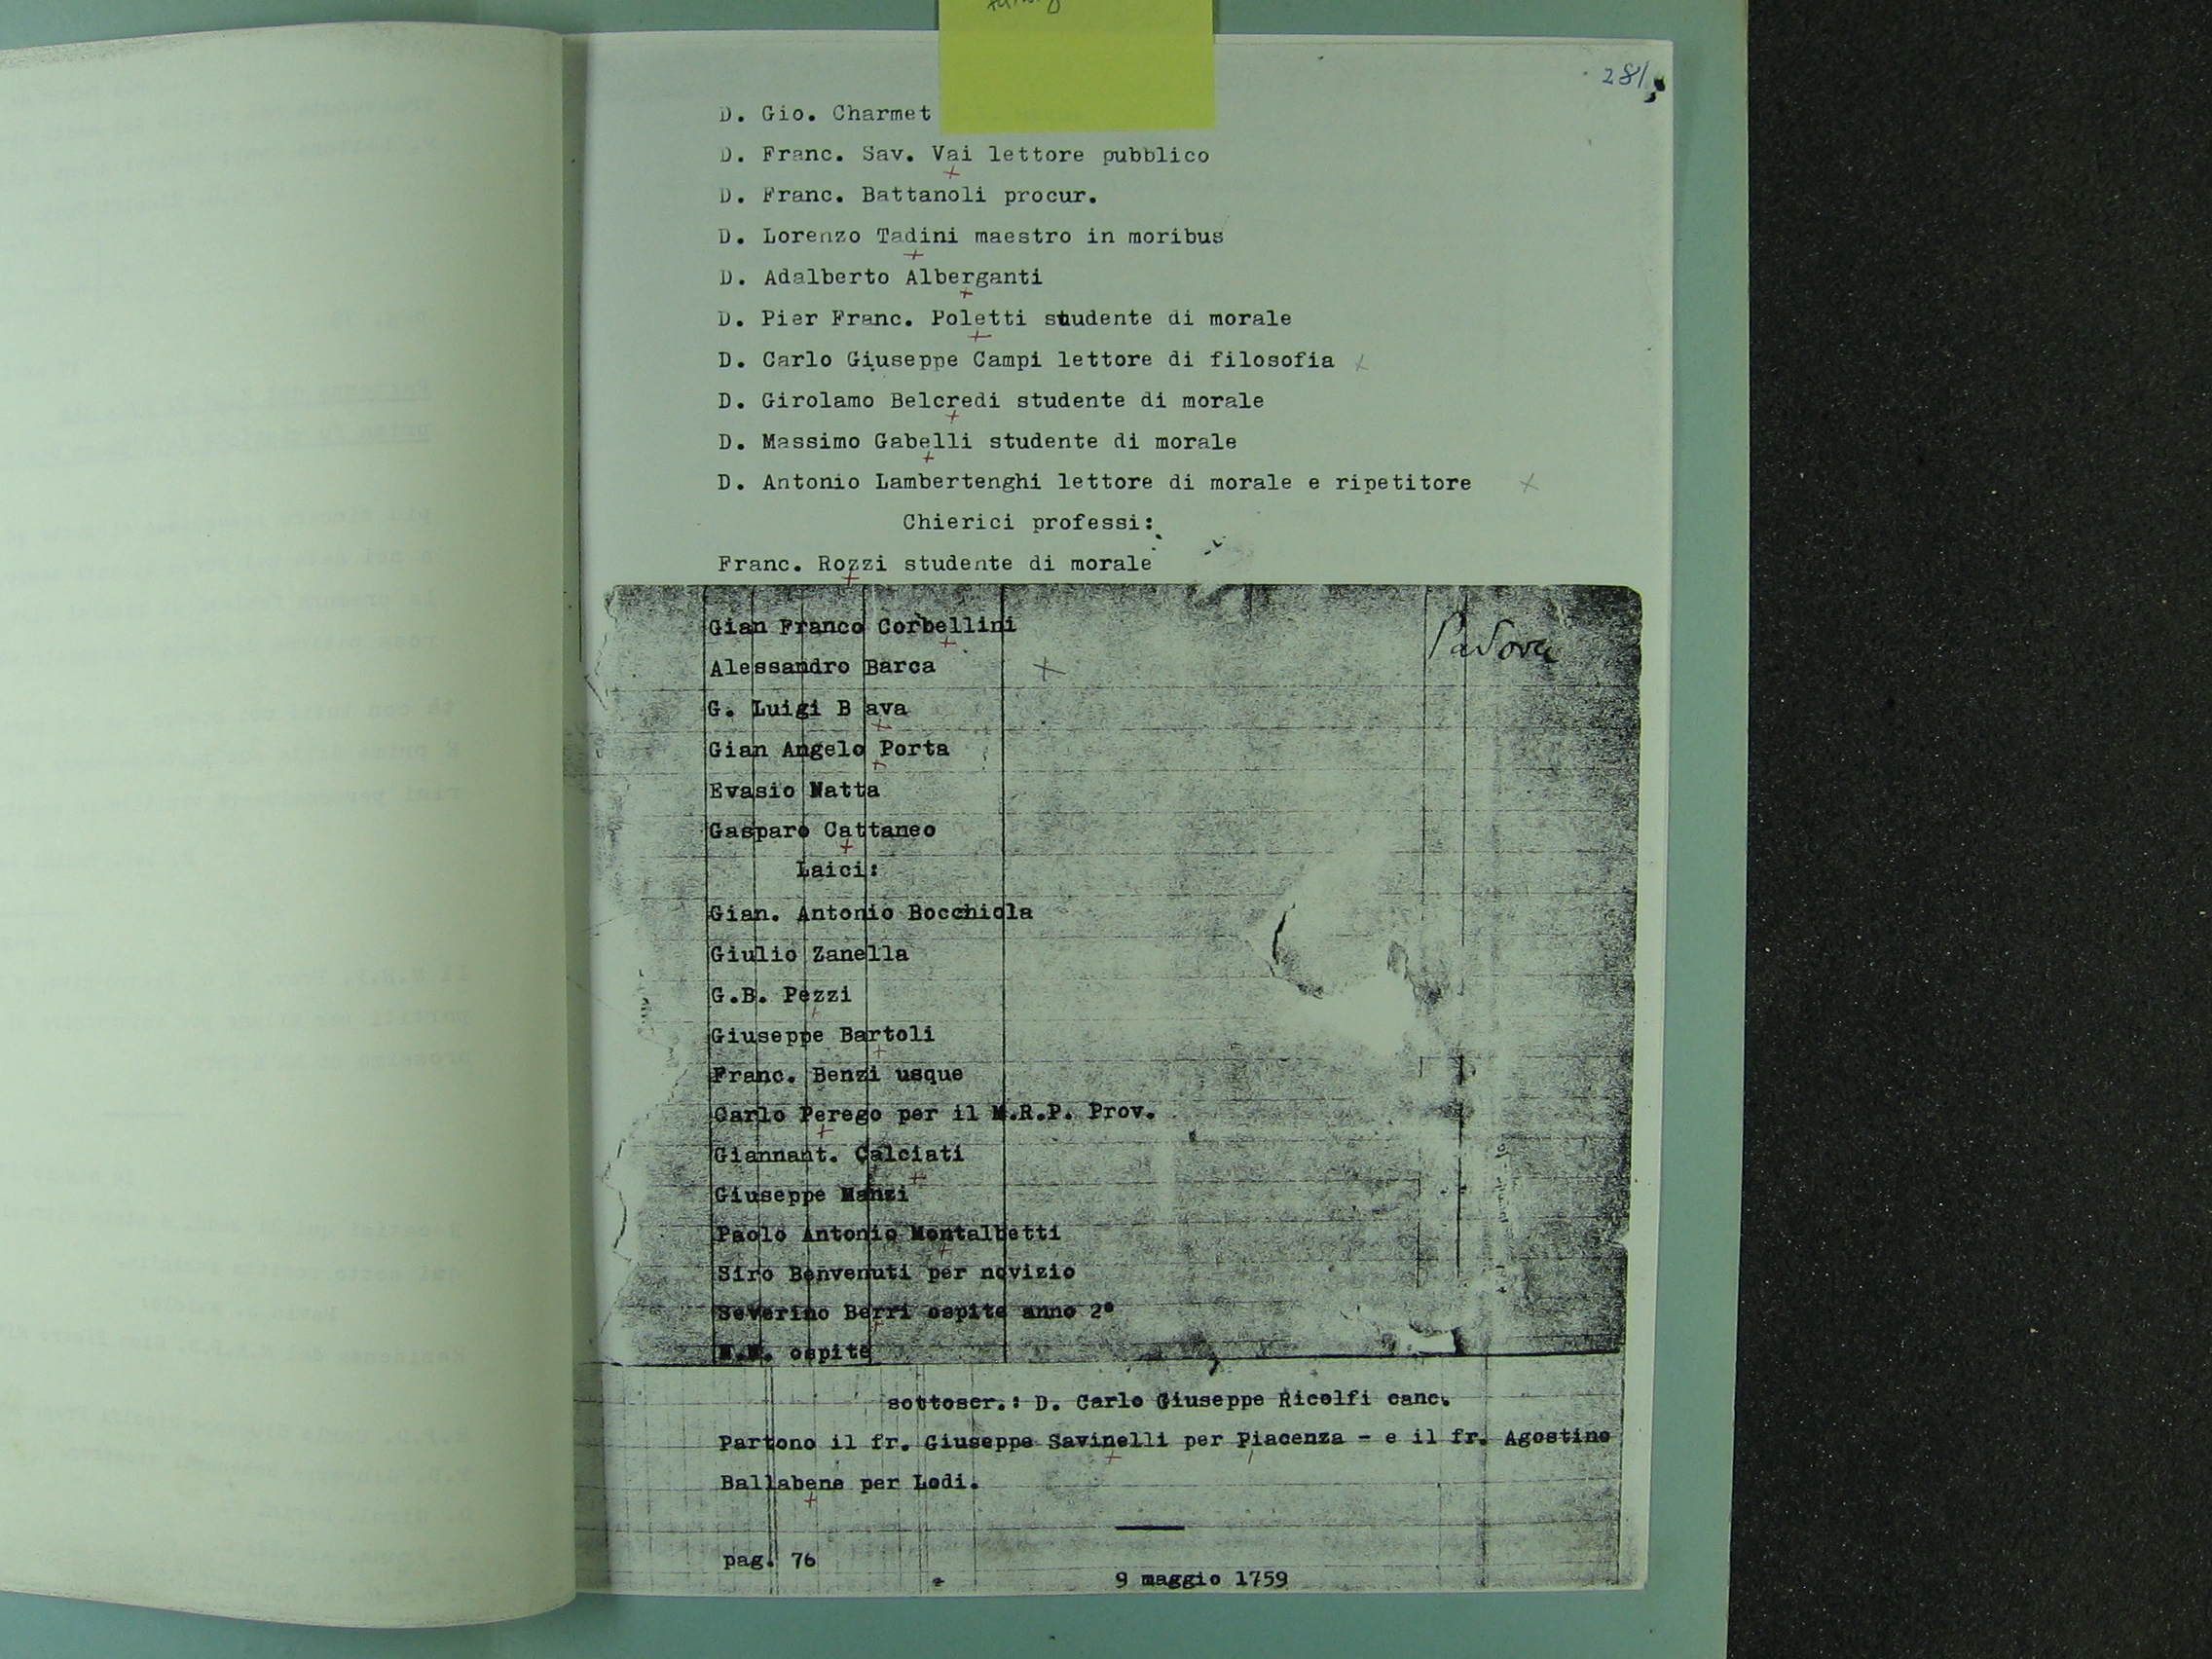 281
D. Gio. Charmet
D. Franc. Sav. Vai lettore pubblico
D. Franc. Battanoli procur.
D. Lorenzo Tadini maestro in moribus
D. Adalberto Alberganti
D. Pier Franc. Poletti studente di morale
D. Carlo Giuseppe Campi lettore di filosofia
D. Girolamo Belcredi studente di morale
D. Massimo Gabelli studente di morale
D. Antonio Lambertenghi lettore di morale e ripetitore
Chierici professi:
Franc. Rozzi studente di morale
Gian Franco Corbellini
Padova
Alessandro Barca
G. Luigi B ava
Gian Angelo Porta
Evasio Natta
Gasparo Cattaneo
Laici:
Gian. Antonio Bocchiola
Giulio Zanella
G.B. Pezzi
Giuseppe Bartoli
Franc. Benzi usque
Carlo Perego per il M.R.P. Prov.
Giannant. Calciati
Giuseppe Manzi
Paolo Antonio Montalbetti
Siro Benvenuti per novizio
Severino Berri ospite anno 2°
N.N. ospite
sottoscr.: D. Carlo Giuseppe Ricolfi canc.
Partono il fr. Giuseppe Savinelli per Piacenza - e il fr. Agostino
Ballabene per Lodi.
pag. 76
9 maggio 1759